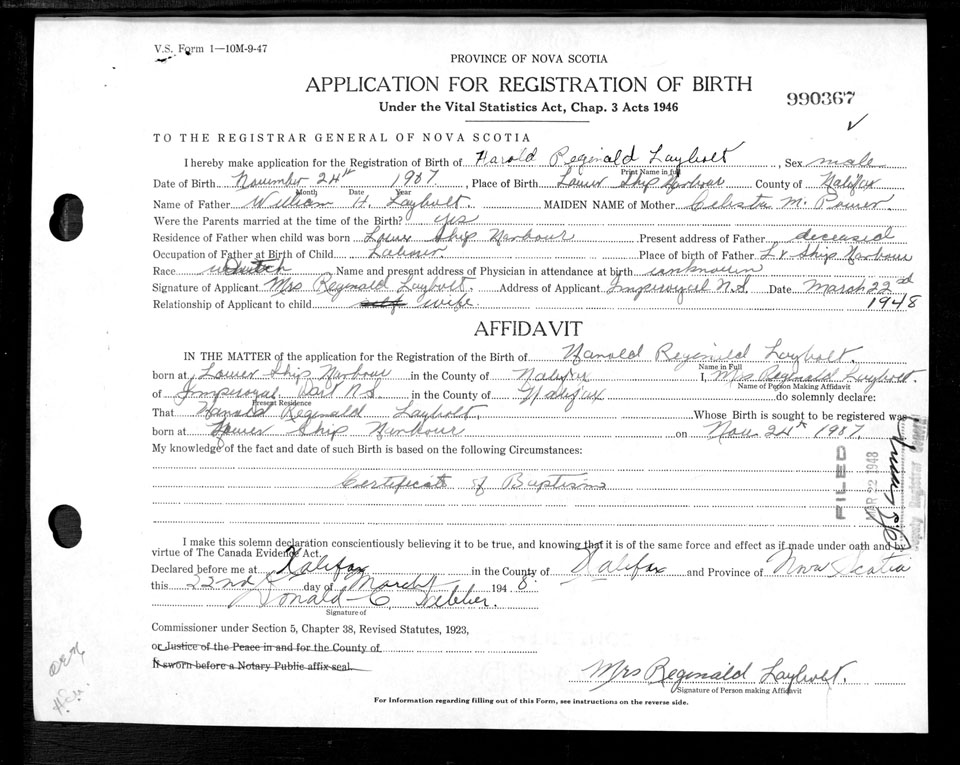 V.S. Form 1—10M-9-47
PROVINCE OF NOVA SCOTIA
APPLICATION FOR REGISTRATION OF BIRTH
990367
Under the Vital Statistics Act, Chap. 3 Acts 1946
TO THE REGISTRAR GENERAL OF NOVA SCOTIA
I hereby make application for the Registration of Birth of Harold Reginald Laybolt, Sex male
Print Name in full
Date of Birth November 24th 1907, Place of Birth Lower Ship Harbour County of Halifax
Month Date Year
Name of Father William H. Laybolt MAIDEN NAME of Mother Celesta M. Power.
Were the Parents married at the time of the Birth? yes
Residence of Father when child was born Lower Ship Harbour Present address of Father deceased
Occupation of Father at Birth of Child Labourer. Place of birth of Father Lr Ship Harbour
Race Dutch Name and present address of Physician in attendance at birth unknown
Signature of Applicant Mrs Reginald Laybolt. Address of Applicant Imperoyal N.S. Date March 22nd
Relationship of Applicant to child self wife. 1948
AFFIDAVIT
IN THE MATTER of the application for the Registration of the Birth of Harold Reginald Laybolt.
Name in Full
born at Lower Ship Harbour in the County of Halifax I, Mrs Reginald Laybolt.
Name of Person Making Affidavit
of Imperoyal, N.S. in the County of Halifax do solemnly declare:
Present Residence
That Harold Reginald Laybolt Whose Birth is sought to be registered was
born at Lower Ship Harbour on Nov 24th 1907.
My knowledge of the fact and date of such Birth is based on the following Circumstances:
Certificate of Baptism
FILED
MAR 22 1948
I make this solemn declaration conscientiously believing it to be true, and knowing that it is of the same force and effect as if made under oath and by
virtue of The Canada Evidence Act.
Declared before me at Halifax in the County of Halifax and Province of Nova Scotia
this 22nd day of March 1948.
Donald C.
Signature of
Commissioner under Section 5, Chapter 38, Revised Statutes, 1923,
or Justice of the Peace in and for the County of
If sworn before a Notary Public affix seal.
Mrs Reginald Laybolt.
Signature of Person making Affidavit
For Information regarding filling out of this Form, see instructions on the reverse side.